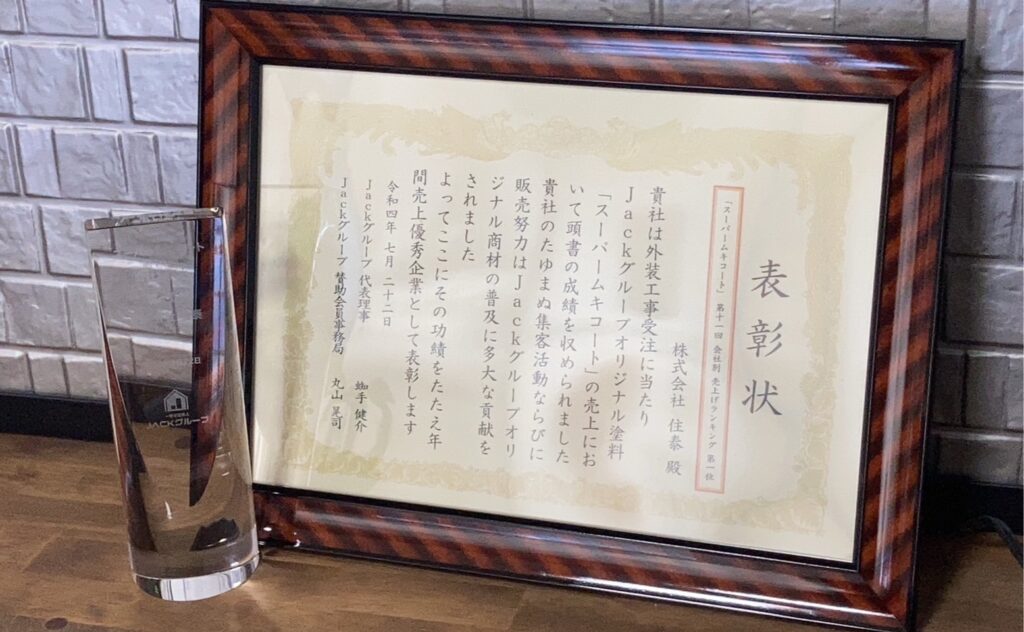 表彰状
「スーパームキコート」 第十一回 会社別 売上げランキング 第一位
株式会社 住泰 殿
貴社は外装工事受注に当たり
Jackグループオリジナル塗料
「スーパームキコート」の売上にお
いて頭書の成績を収められました
貴社のたゆまぬ集客活動ならびに
販売努力はJackグループオリ
ジナル商材の普及に多大な貢献を
されました
よってここにその功績をたたえ年
間売上優秀企業として表彰します
令和四年 七月 二十二日
Jackグループ 代表理事 蜘手 健介
Jackグループ 賛助会員事務局 丸山 晃司
JACKグループ